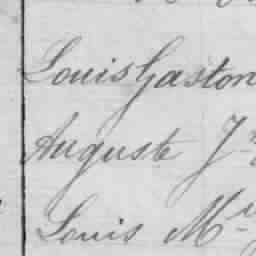 Louis Gaston
Auguste
Louis